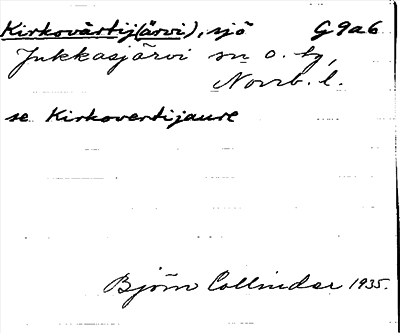 Kirkovärtij(ärvi), sjö G9a6
Jukkasjärvi sn o. tg,
Norrb. l.
se Kirkovertijaure
Björn Collinder 1935.